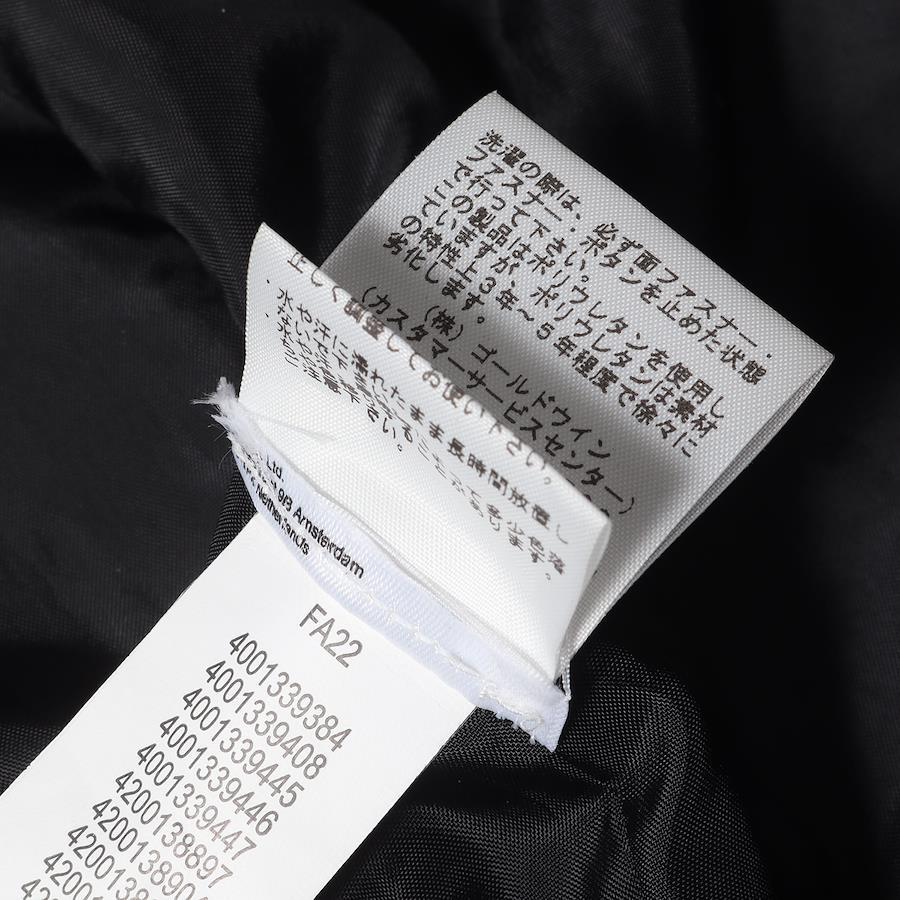 洗濯の際は、必ず面ファスナー・
ファスナー・ボタンを止めた状態
で行って下さい。
この製品はポリウレタンを使用し
ていますが、ポリウレタンは素材
の特性上3年～5年程度で徐々に
劣化します。
(株)ゴールドウイン
(カスタマーサービスセンター)
正しく調整してお使い下さい。
・水や汗に濡れたまま長時間放置し
Ltd.
Amsterdam
Netherlands
FA22
4001339384
4001339408
4001339445
4001339446
4001339447
4200138897